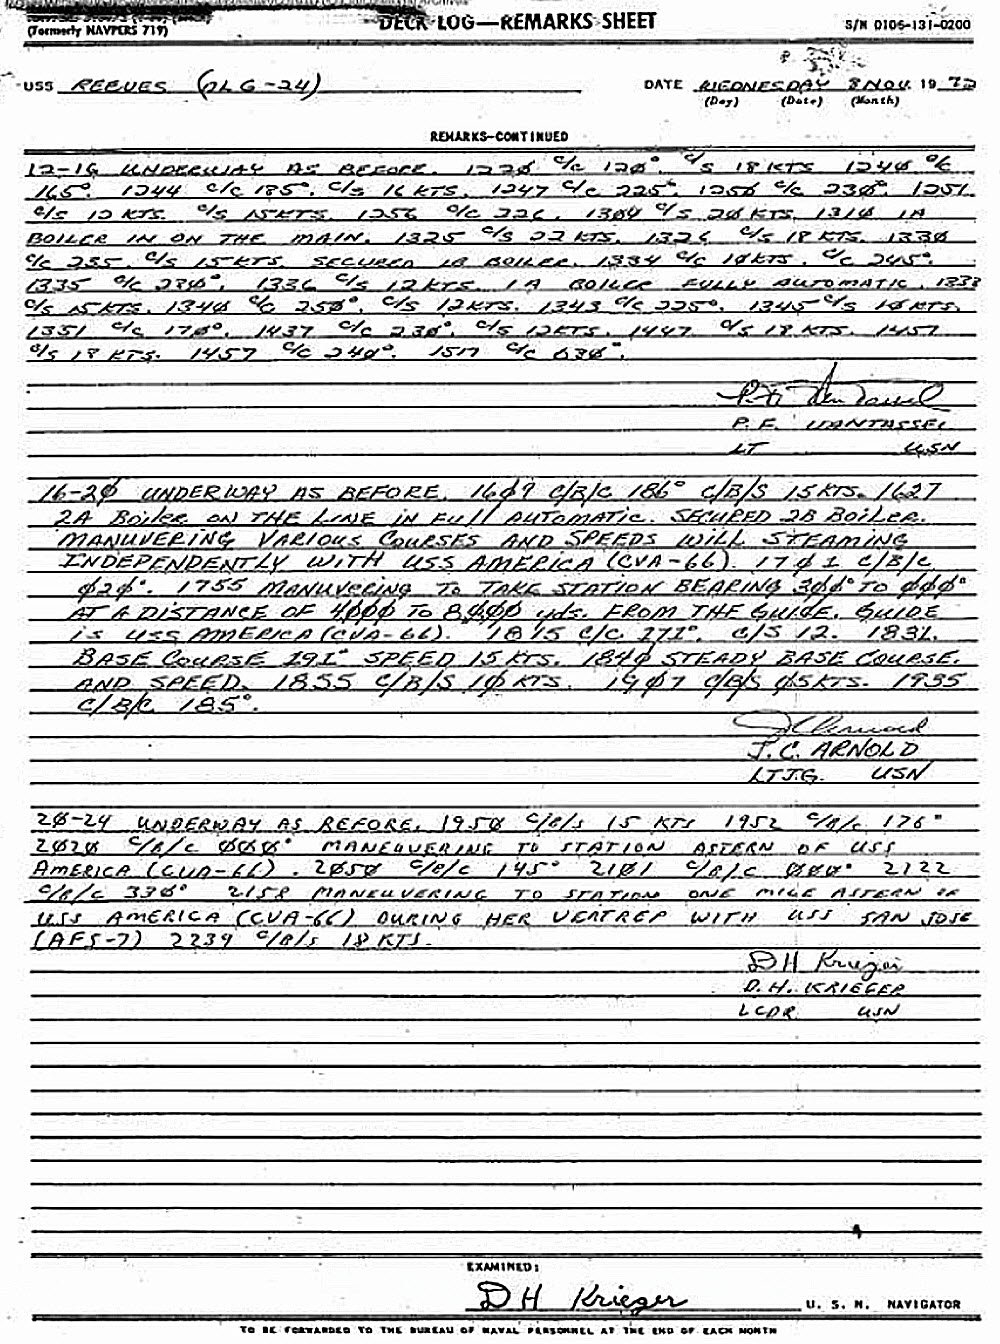 (Formerly NAVPERS 719)
DECK LOG—REMARKS SHEET
S/N 0105-131-0200
USS REEVES (DLG-24)
DATE WEDNESDAY 8 NOV. 19 72
(Day) (Date) (Month)
REMARKS—CONTINUED
12-16 UNDERWAY AS BEFORE. 122Ø C/C 12Ø°. C/S 18 KTS 124Ø C/C
165°. 1244 C/C 185°. C/S 16 KTS. 1247 C/C 225°. 125Ø C/C 23Ø°. 1251
C/S 12 KTS. C/S 15 KTS. 1256 C/C 226. 13Ø4 C/S 2Ø KTS. 131Ø 1A
BOILER IN ON THE MAIN. 1325 C/S 22 KTS. 1326 C/S 18 KTS. 133Ø
C/C 235. C/S 15 KTS. SECURED 1B BOILER. 1334 C/C 1Ø KTS. C/C 245°.
1335 C/C 23Ø°. 1336 C/S 12 KTS. 1A BOILER FULLY AUTOMATIC. 1338
C/S 15 KTS. 134Ø C/C 25Ø°. C/S 12 KTS. 1343 C/C 225°. 1345 C/S 1Ø KTS.
1351 C/C 17Ø°. 1437 C/C 23Ø°. C/S 12 KTS. 1447 C/S 18 KTS. 1457
C/S 18 KTS. 1457 C/C 24Ø°. 1517 C/C Ø3Ø°.
P. F. VANTASSEL
LT USN
16-2Ø UNDERWAY AS BEFORE. 16Ø9 C/B/C 186° C/B/S 15 KTS. 1627
2A Boiler ON THE LINE IN FULL AUTOMATIC. SECURED 2B BOILER.
MANUVERING VARIOUS COURSES AND SPEEDS WILL STEAMING
INDEPENDENTLY WITH USS AMERICA (CVA-66). 17Ø1 C/B/C
Ø2Ø°. 1755 MANUVERING TO TAKE STATION BEARING 3ØØ° TO ØØØ°
AT A DISTANCE OF 4ØØØ TO 8ØØØ yds. FROM THE GUIDE. GUIDE
is USS AMERICA (CVA-66). 1815 C/C 171°. C/S 12. 1831.
BASE COURSE 191° SPEED 15 KTS. 184Ø STEADY BASE COURSE.
AND SPEED. 1855 C/B/S 1Ø KTS. 19Ø7 C/B/S Ø5 KTS. 1935
C/B/C 185°.
J. C. ARNOLD
LTJG. USN
2Ø-24 UNDERWAY AS BEFORE. 195Ø C/B/S 15 KTS 1952 C/B/C 176°
2Ø2Ø C/B/C ØØØ° MANEUVERING TO STATION ASTERN OF USS
AMERICA (CVA-66). 2Ø5Ø C/B/C 145° 21Ø1 C/B/C ØØØ° 2122
C/B/C 33Ø° 2158 MANEUVERING TO STATION ONE MILE ASTERN OF
USS AMERICA (CVA-66) DURING HER VERTREP WITH USS SAN JOSE
(AFS-7) 2239 C/B/S 18 KTS.
D H Krieger
D. H. KRIEGER
LCDR USN
EXAMINED:
D H Krieger U. S. N. NAVIGATOR
TO BE FORWARDED TO THE BUREAU OF NAVAL PERSONNEL AT THE END OF EACH MONTH